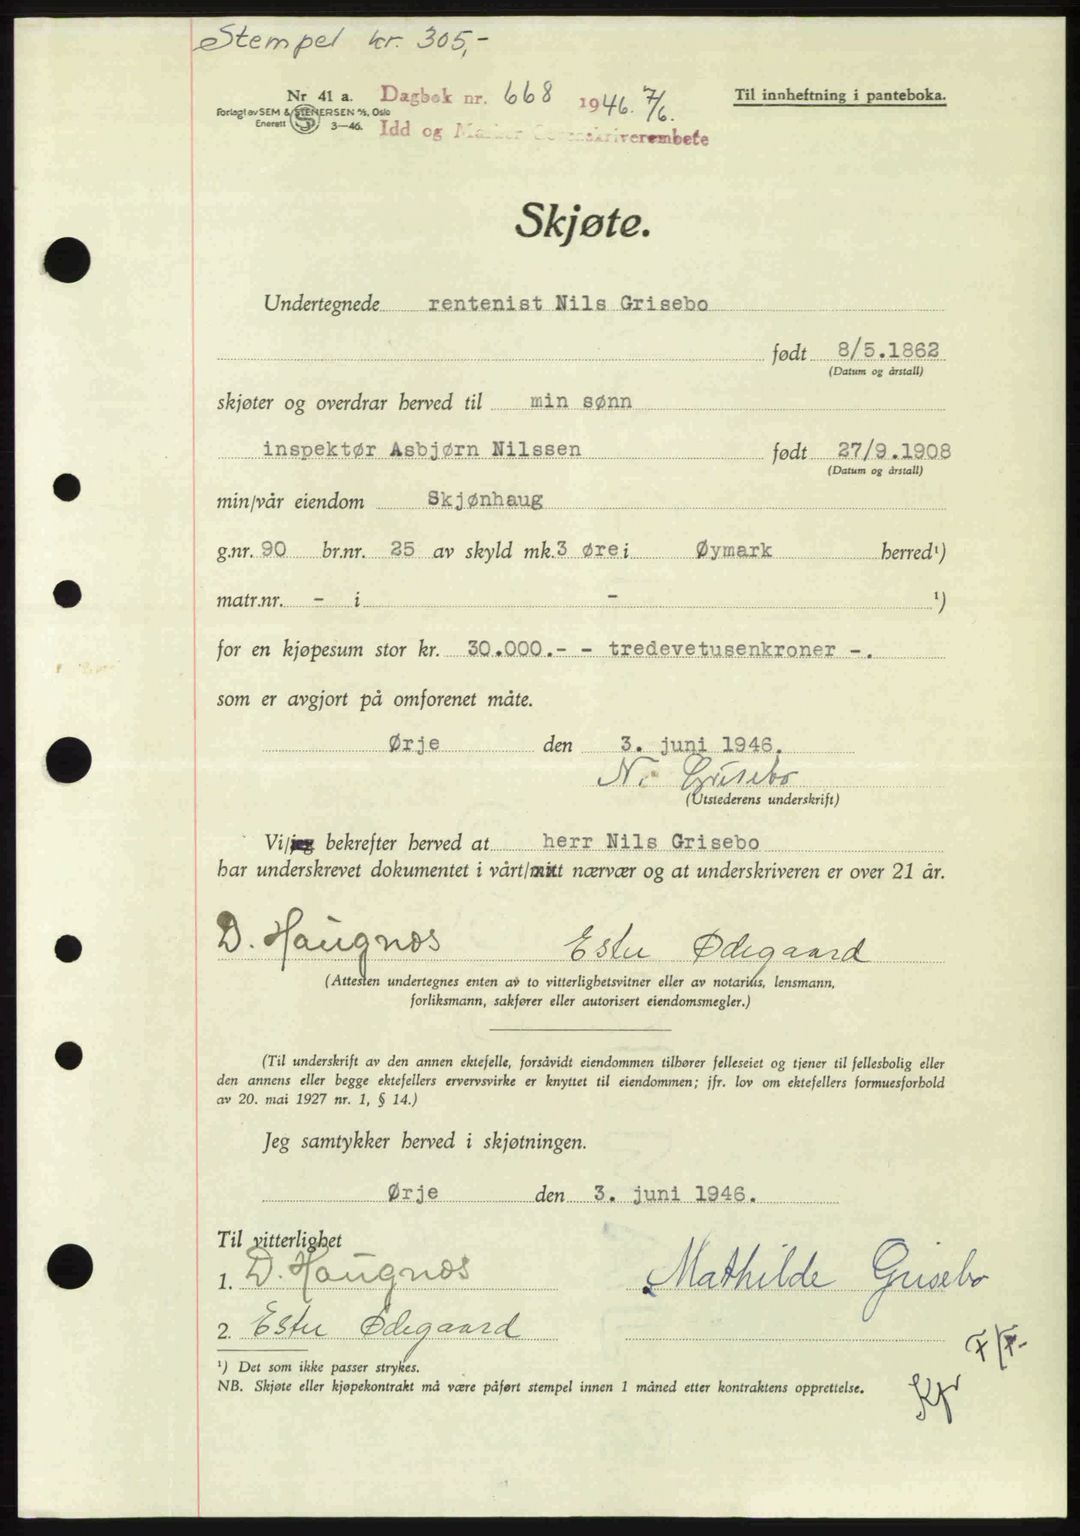 Stempel kr. 305,-
Nr 41 a. Dagbok nr. 668 1946. 7/6. Til innheftning i panteboka.
Forlagt av SEM & STENERSEN A/S, Oslo
Enerett 3—46. Idd og Marker Sorenskriverembete
Skjøte.
Undertegnede rentenist Nils Grisebo
født 8/5.1862
(Datum og årstall)
skjøter og overdrar herved til min sønn
inspektør Asbjørn Nilssen født 27/9.1908
(Datum og årstall)
min/vår eiendom Skjønhaug
g.nr. 90 br.nr. 25 av skyld mk. 3 øre i Øymark herred¹)
matr.nr. - i - ¹)
for en kjøpesum stor kr. 30.000.- - tredevetusenkroner -.
som er avgjort på omforenet måte.
Ørje den 3. juni 1946.
N. Grisebo
(Utstederens underskrift)
Vi/jeg bekrefter herved at herr Nils Grisebo
har underskrevet dokumentet i vårt/mitt nærvær og at underskriveren er over 21 år.
D. Haugnæs Ester Ødegaard
(Attesten undertegnes enten av to vitterlighetsvitner eller av notarius, lensmann,
forliksmann, sakfører eller autorisert eiendomsmegler.)
(Til underskrift av den annen ektefelle, forsåvidt eiendommen tilhører felleseiet og tjener til fellesbolig eller
den annens eller begge ektefellers ervervsvirke er knyttet til eiendommen; jfr. lov om ektefellers formuesforhold
av 20. mai 1927 nr. 1, § 14.)
Jeg samtykker herved i skjøtningen.
Ørje den 3. juni 1946.
Til vitterlighet
1. D. Haugnæs Mathilde Grisebo
2. Ester Ødegaard
¹) Det som ikke passer strykes.
NB. Skjøte eller kjøpekontrakt må være påført stempel innen 1 måned etter kontraktens opprettelse.